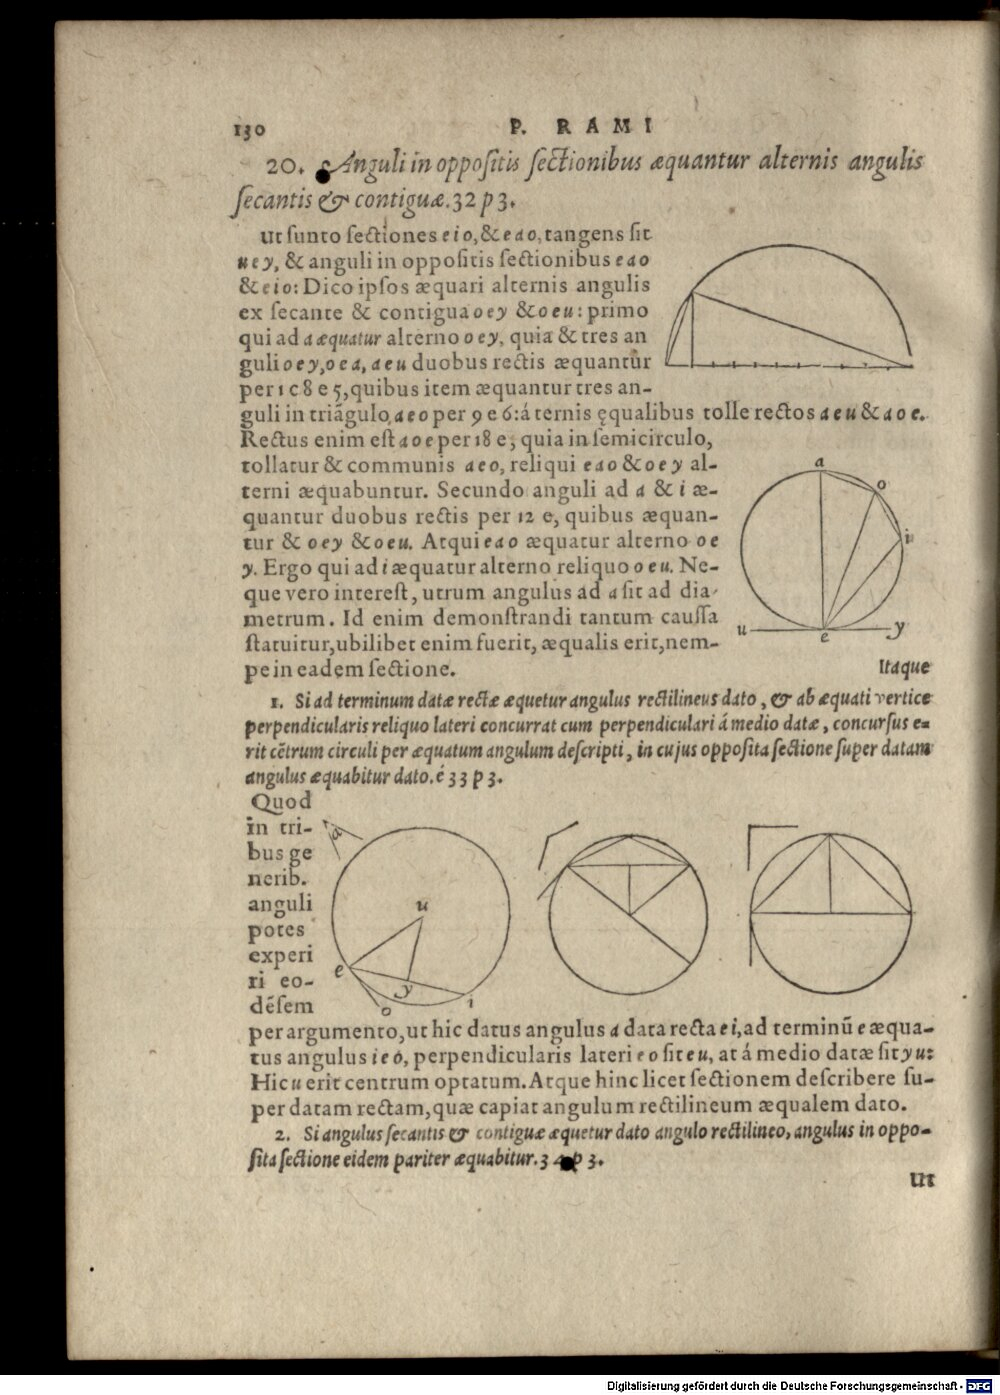 130 P. RAMI
20. Anguli in oppoſitis ſectionibus æquantur alternis angulis
ſecantis & contiguæ. 32 p 3.
Ut ſunto ſectiones e i o, & e a o, tangens ſit
u e y, & anguli in oppoſitis ſectionibus e a o
& e i o: Dico ipſos æquari alternis angulis
ex ſecante & contigua o e y & o e u: primo
qui ad a æquatur alterno o e y, quia & tres an
guli o e y, o e a, a e u duobus rectis æquantur
per 1 c 8 e 5, quibus item æquantur tres an-
guli in triãgulo, a e o per 9 e 6: á ternis ęqualibus tolle rectos a e u & a o e.
Rectus enim eſt a o e per 18 e, quia in ſemicirculo,
tollatur & communis a e o, reliqui e a o & o e y al-
terni æquabuntur. Secundo anguli ad a & i æ-
quantur duobus rectis per 12 e, quibus æquan-
tur & o e y & o e u. Atqui e a o æquatur alterno o e
y. Ergo qui ad i æquatur alterno reliquo o e u. Ne-
que vero intereſt, utrum angulus ad a ſit ad dia-
metrum. Id enim demonſtrandi tantum cauſſa
ſtatuitur, ubilibet enim fuerit, æqualis erit, nem-
pe in eadem ſectione.
a
o
i
u
e
y
Itaque
1. Si ad terminum datæ rectæ æquetur angulus rectilineus dato, & ab æquati vertice
perpendicularis reliquo lateri concurrat cum perpendiculari á medio datæ, concurſus e-
rit cẽtrum circuli per æquatum angulum deſcripti, in cujus oppoſita ſectione ſuper datam
angulus æquabitur dato. é 33 p 3.
Quod
in tri-
bus ge
nerib.
anguli
potes
experi
ri eo-
dẽſem
a
u
e
y
o
i
per argumento, ut hic datus angulus a data recta e i, ad terminũ e æqua-
tus angulus i e o, perpendicularis lateri e o ſit e u, at á medio datæ ſit y u:
Hic u erit centrum optatum. Atque hinc licet ſectionem deſcribere ſu-
per datam rectam, quæ capiat angulum rectilineum æqualem dato.
2. Si angulus ſecantis & contiguæ æquetur dato angulo rectilineo, angulus in oppo-
ſita ſectione eidem pariter æquabitur. 34 p 3.
Ut
Digitalisierung gefördert durch die Deutsche Forschungsgemeinschaft - DFG